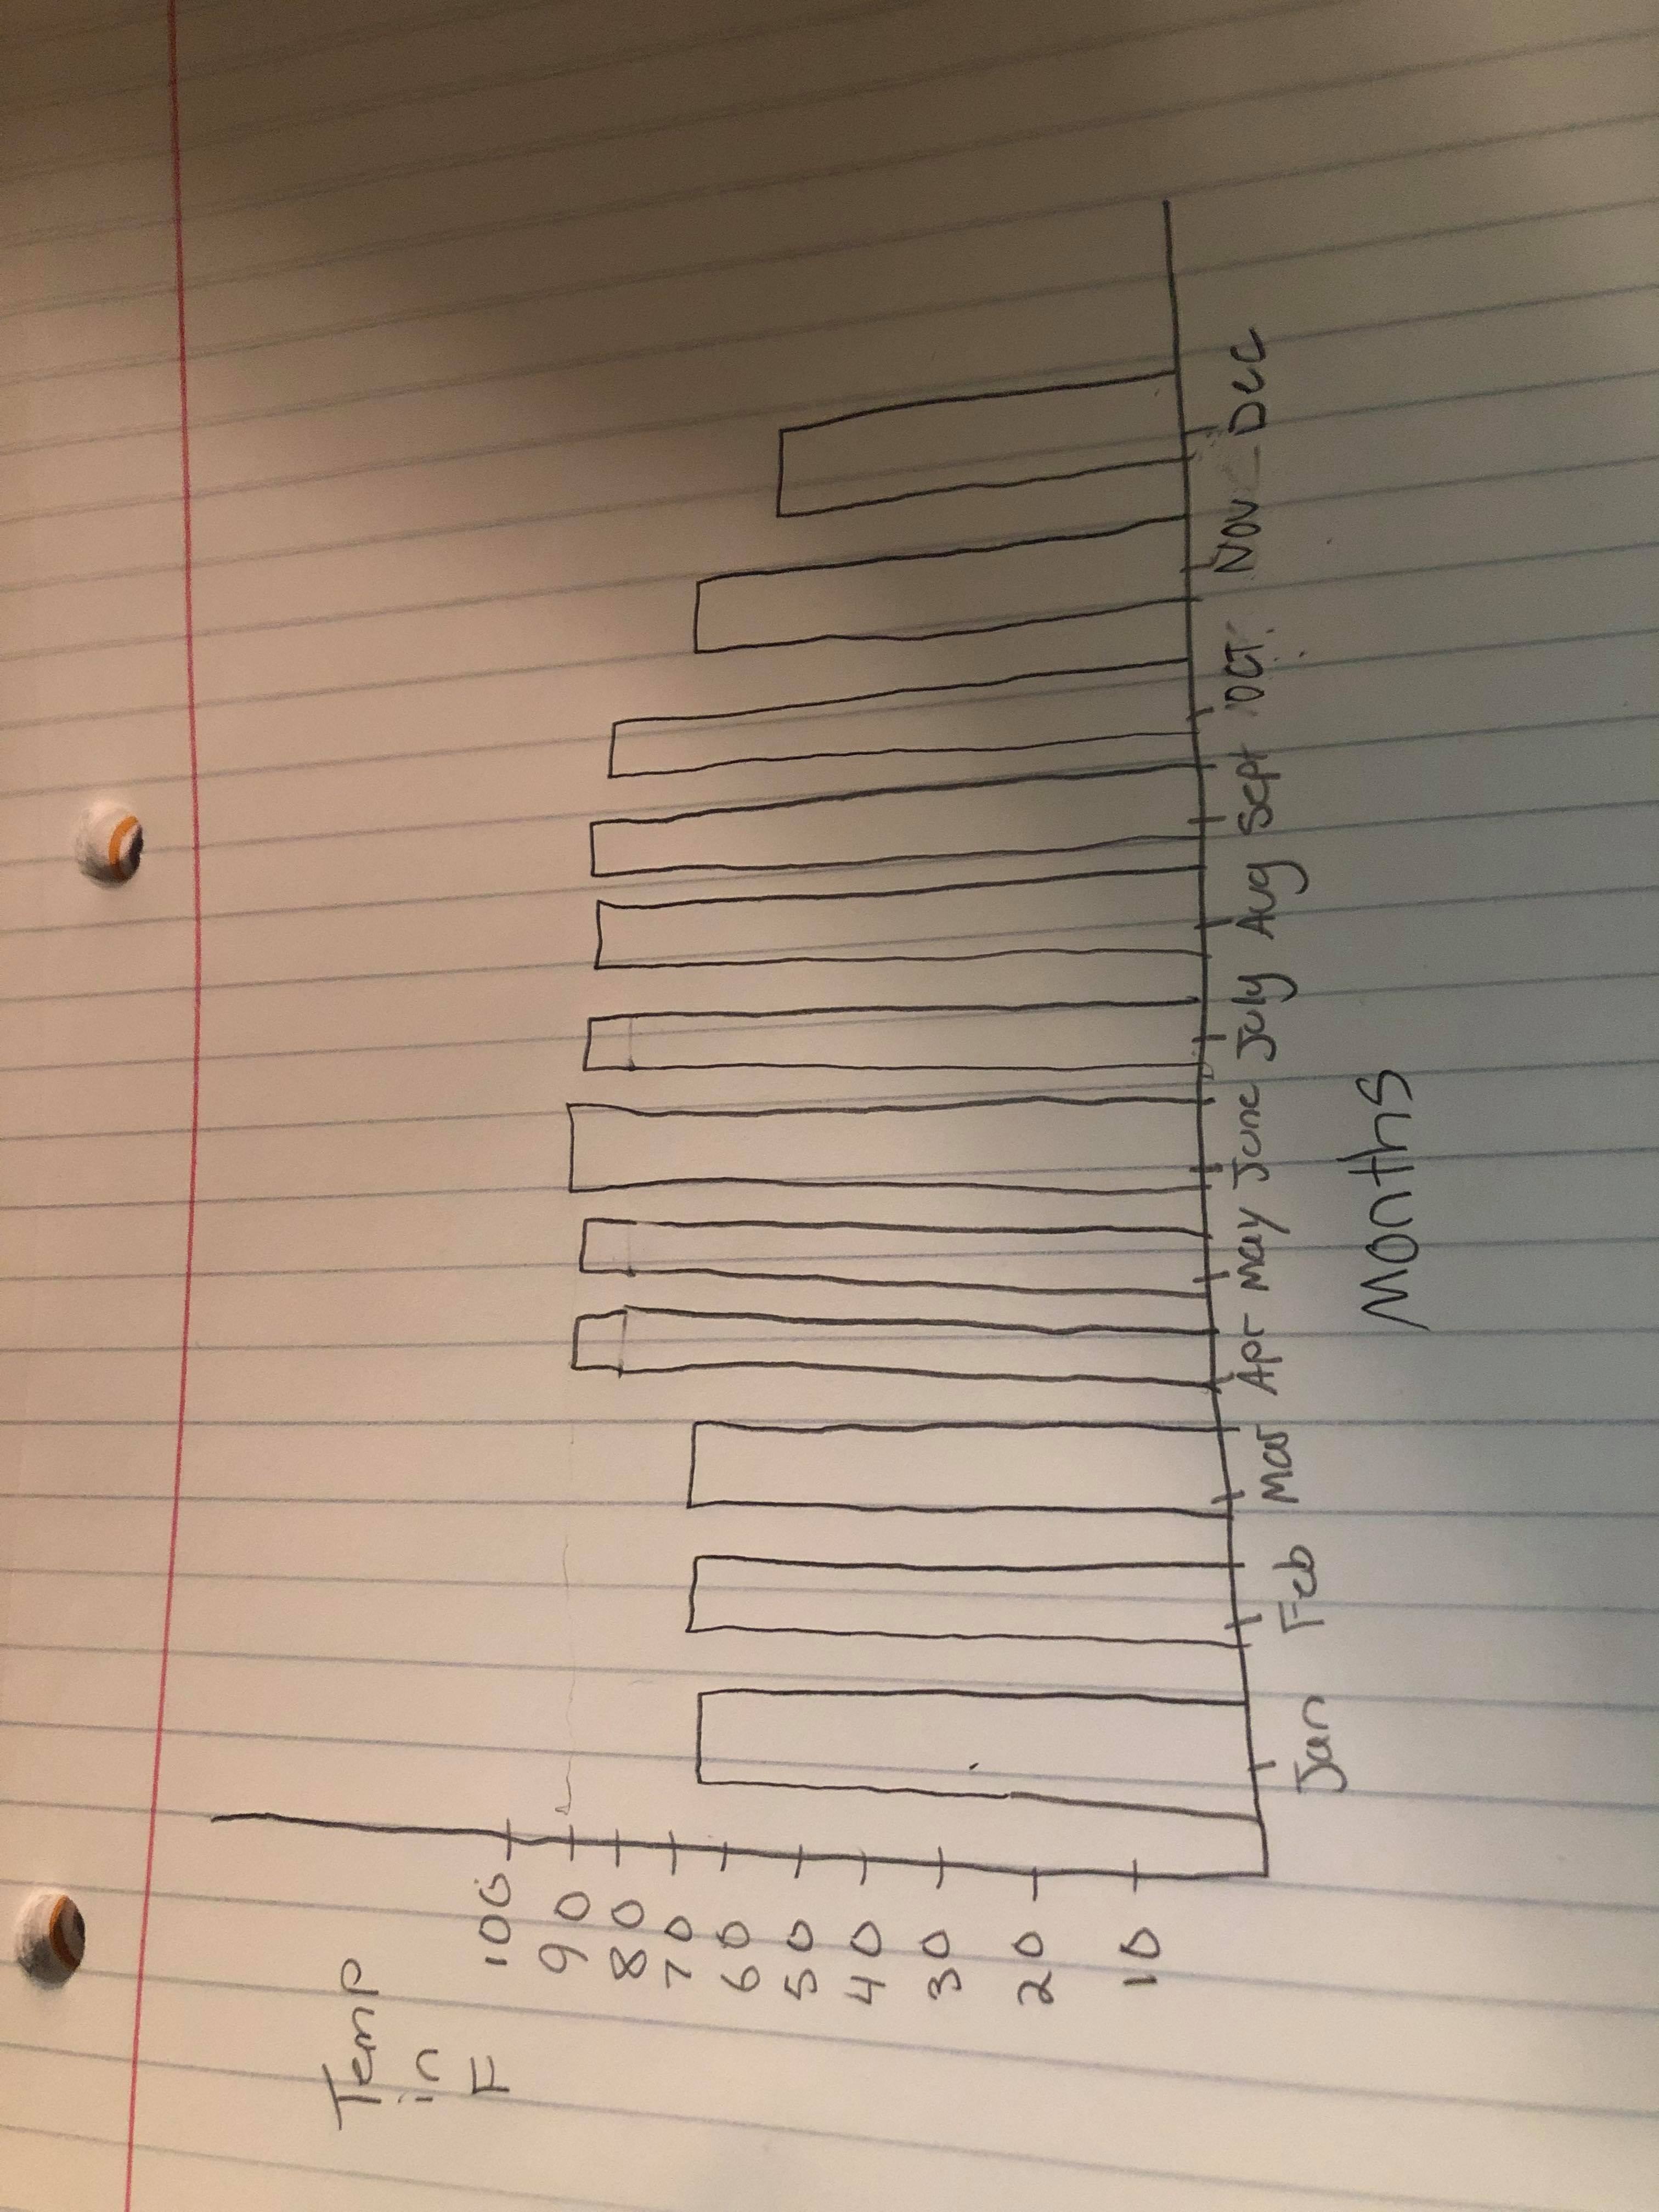 Temp
in
F
100
90
80
70
60
50
40
30
20
10
Jan Feb Mar Apr May June July Aug Sept OCT. Nov Dec
Months